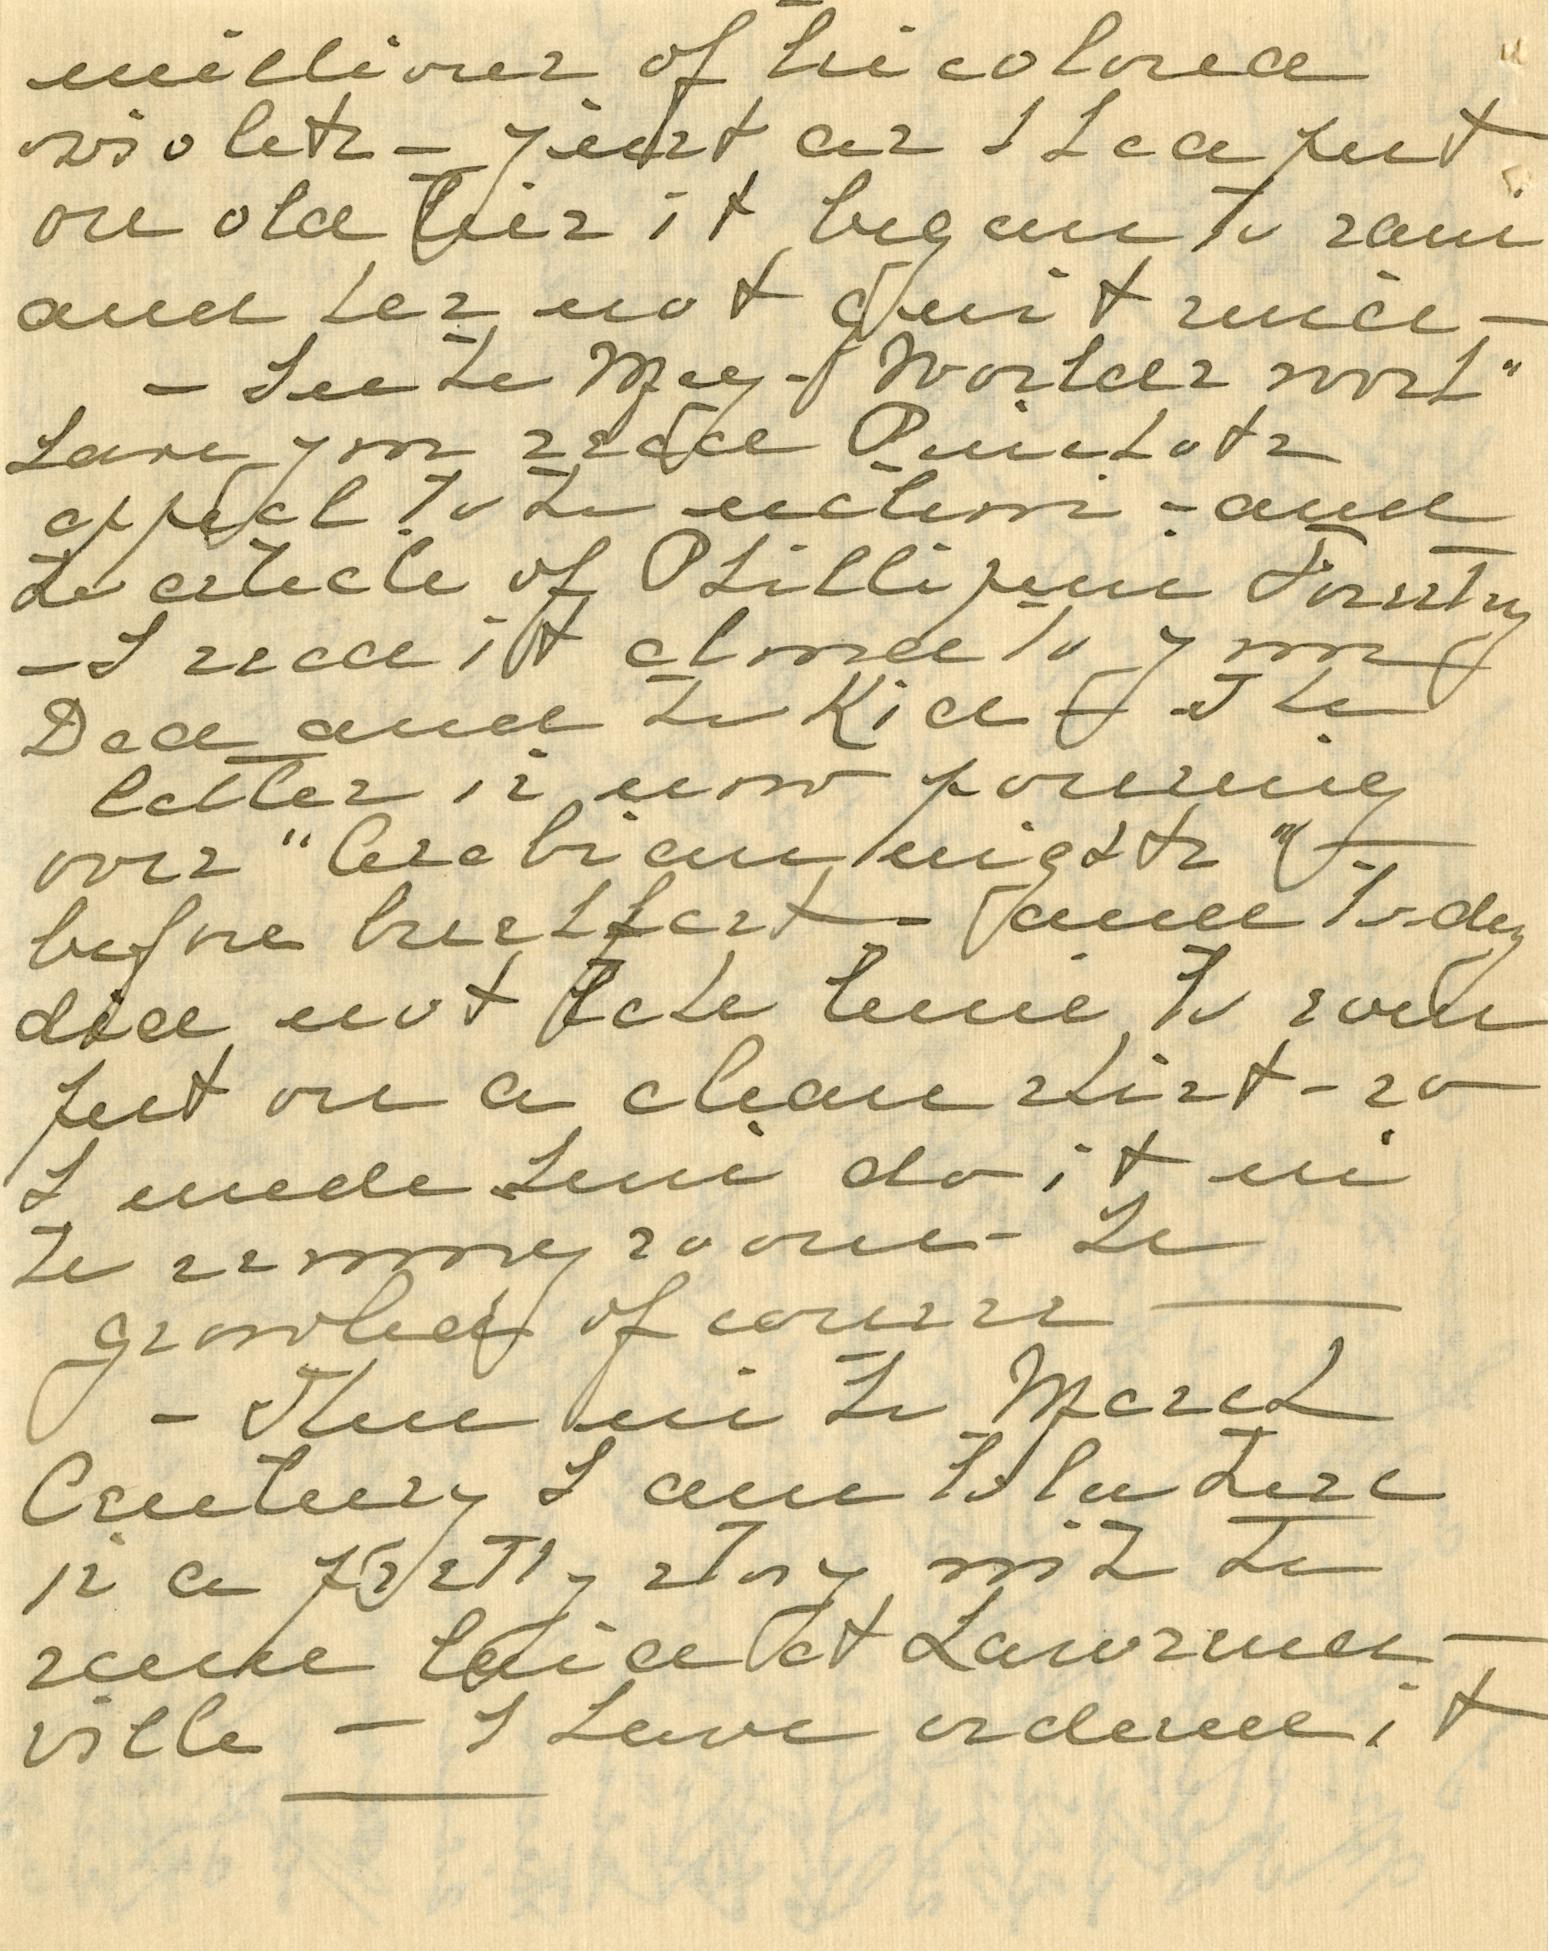 millions of tricolored
violets – just as I had put
on old ties it began to rain
and has not quit since –
– See the May – World's work"
have you read Pinchots
appeal to the nation – and
the article of Phillipine Forestry
– I read it aloud to your
Dad and the Kid – The
latter is now pouring
over "Arabian nights" –
before breakfast – and to-day
did not take time to even
put on a clean shirt – so
I made him do it in
the sewing room – he
growled of course —
– Then in the March
Century I am told there
is a pretty story with the
scene laid at Lawrence-
ville – I have ordered it